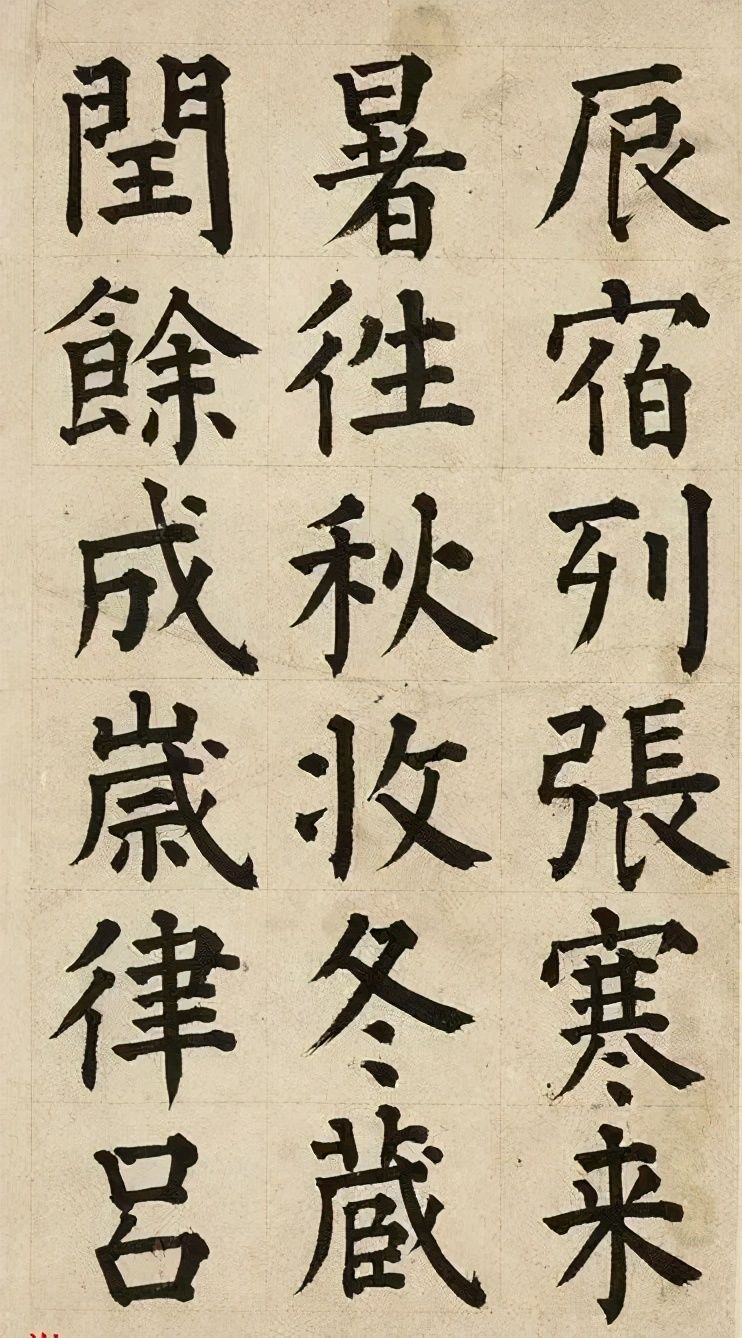 辰宿列張寒来
暑徃秋收冬蔵
閏餘成歲律吕